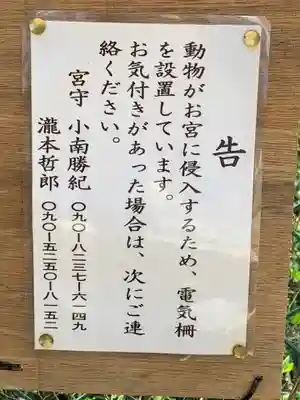 告
動物がお宮に侵入するため、電気柵
を設置しています。
お気付きがあった場合は、次にご連
絡ください。
宮守 小南勝紀 〇九〇-八二三七-六一四九
瀧本哲郎 〇九〇-五二五〇-八一五二